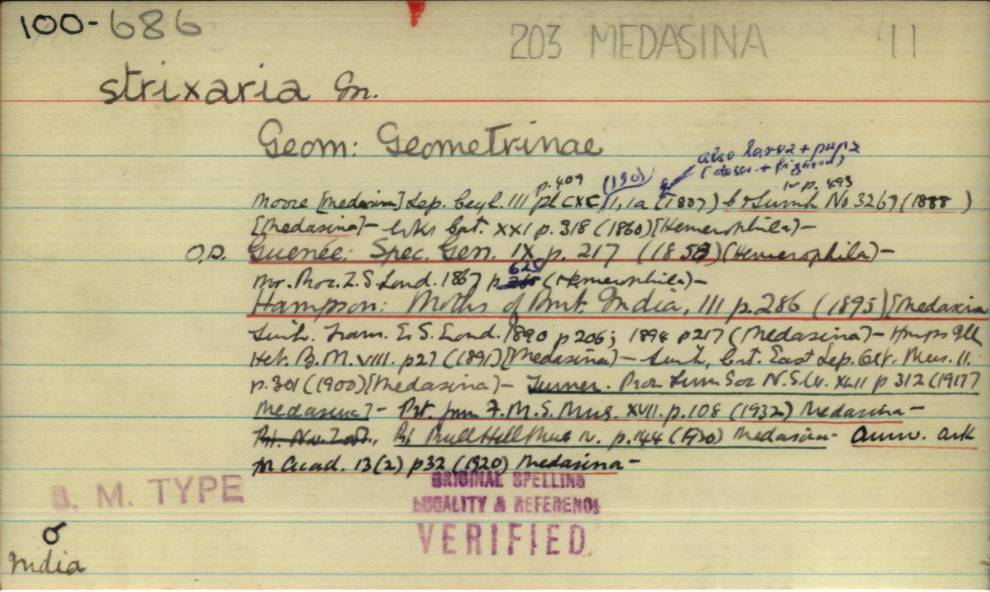 100-686
203 MEDASINA 11
strixaria Gn.
Geom: Geometrinae
also larva + pupa
(descr. + figured)
p. 409 (190) iv p. 493
Moore [Medasina] Lep. Ceyl. III pl CXC, 1, 1a (1887) No 3267 (1888)
[Medasina] - Wkr Cat. XXI p. 318 (1860) [Hemerophila] -
O.D. Guenée: Spec. Gen. IX p. 217 (1858) (Hemerophila) -
Mr. Proc. Z. S. Lond. 1867 p 625 (Hemerophila) -
Hampson: Moths of Brit. India, III p. 286 (1895) [Medasina
Swinh. Trans. E S. Lond. 1890 p 206; 1894 p217 (Medasina) - Hmps Ill
Het. B. M. VIII. p27 (1891) [Medasina] - Swinh, Cat. East Lep. Oxf. Mus. II.
p. 301 (1900) [Medasina] - Turner. Proc Linn Soc N.S.W. XLII p 312 (1917)
Medasina] - Prt. Jrn F.M.S. Mus. XVII. p. 108 (1932) Medasina -
Prt. Nov. Zool., Prt Bull Hill Mus IV. p. 144 (1930) Medasina - Ark
Acad. 13(2) p32 (1920) Medasina -
B. M. TYPE
ORIGINAL SPELLING
LOCALITY & REFERENCE
VERIFIED.
♂
India